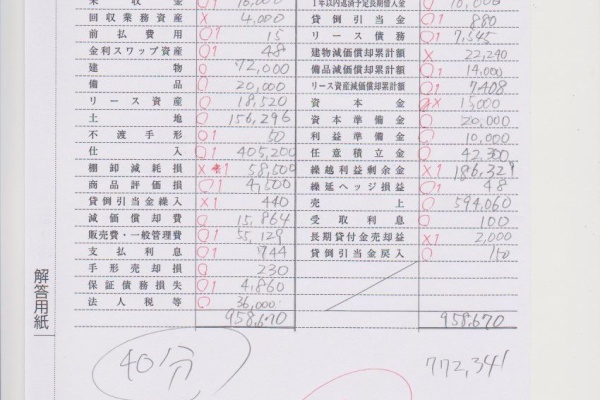 未 収 金 ○1 16,000 1年以内返済予定長期借入金 ○ 10,000
回収業務資産 × 4,000 貸倒引当金 ○1 880
前払費用 ○1 15 リース債務 ○1 7,545
金利スワップ資産 ○1 48 建物減価償却累計額 × 22,240
建物 ○ 72,000 備品減価償却累計額 ○1 14,000
備品 ○ 20,000 リース資産減価償却累計額 ○1 7,408
リース資産 ○ 18,520 資本金 × 15,000
土地 ○ 156,296 資本準備金 ○ 20,000
不渡手形 ○1 50 利益準備金 ○ 10,000
仕入 ○1 405,200 任意積立金 ○ 42,300
棚卸減耗損 ×1 58,500 繰越利益剰余金 ×1 186,329
商品評価損 ○1 4,500 繰延ヘッジ損益 ○1 48
貸倒引当金繰入 ×1 440 売上 ○ 594,060
減価償却費 ○ 15,864 受取利息 ○ 100
販売費・一般管理費 ○1 55,129 長期貸付金売却益 ×1 2,000
支払利息 ○1 744 貸倒引当金戻入 ○ 150
手形売却損 ○ 230
保証債務損失 ○1 4,860
法人税等 ○ 36,000
958,670 958,670
解答用紙
40分
772,341